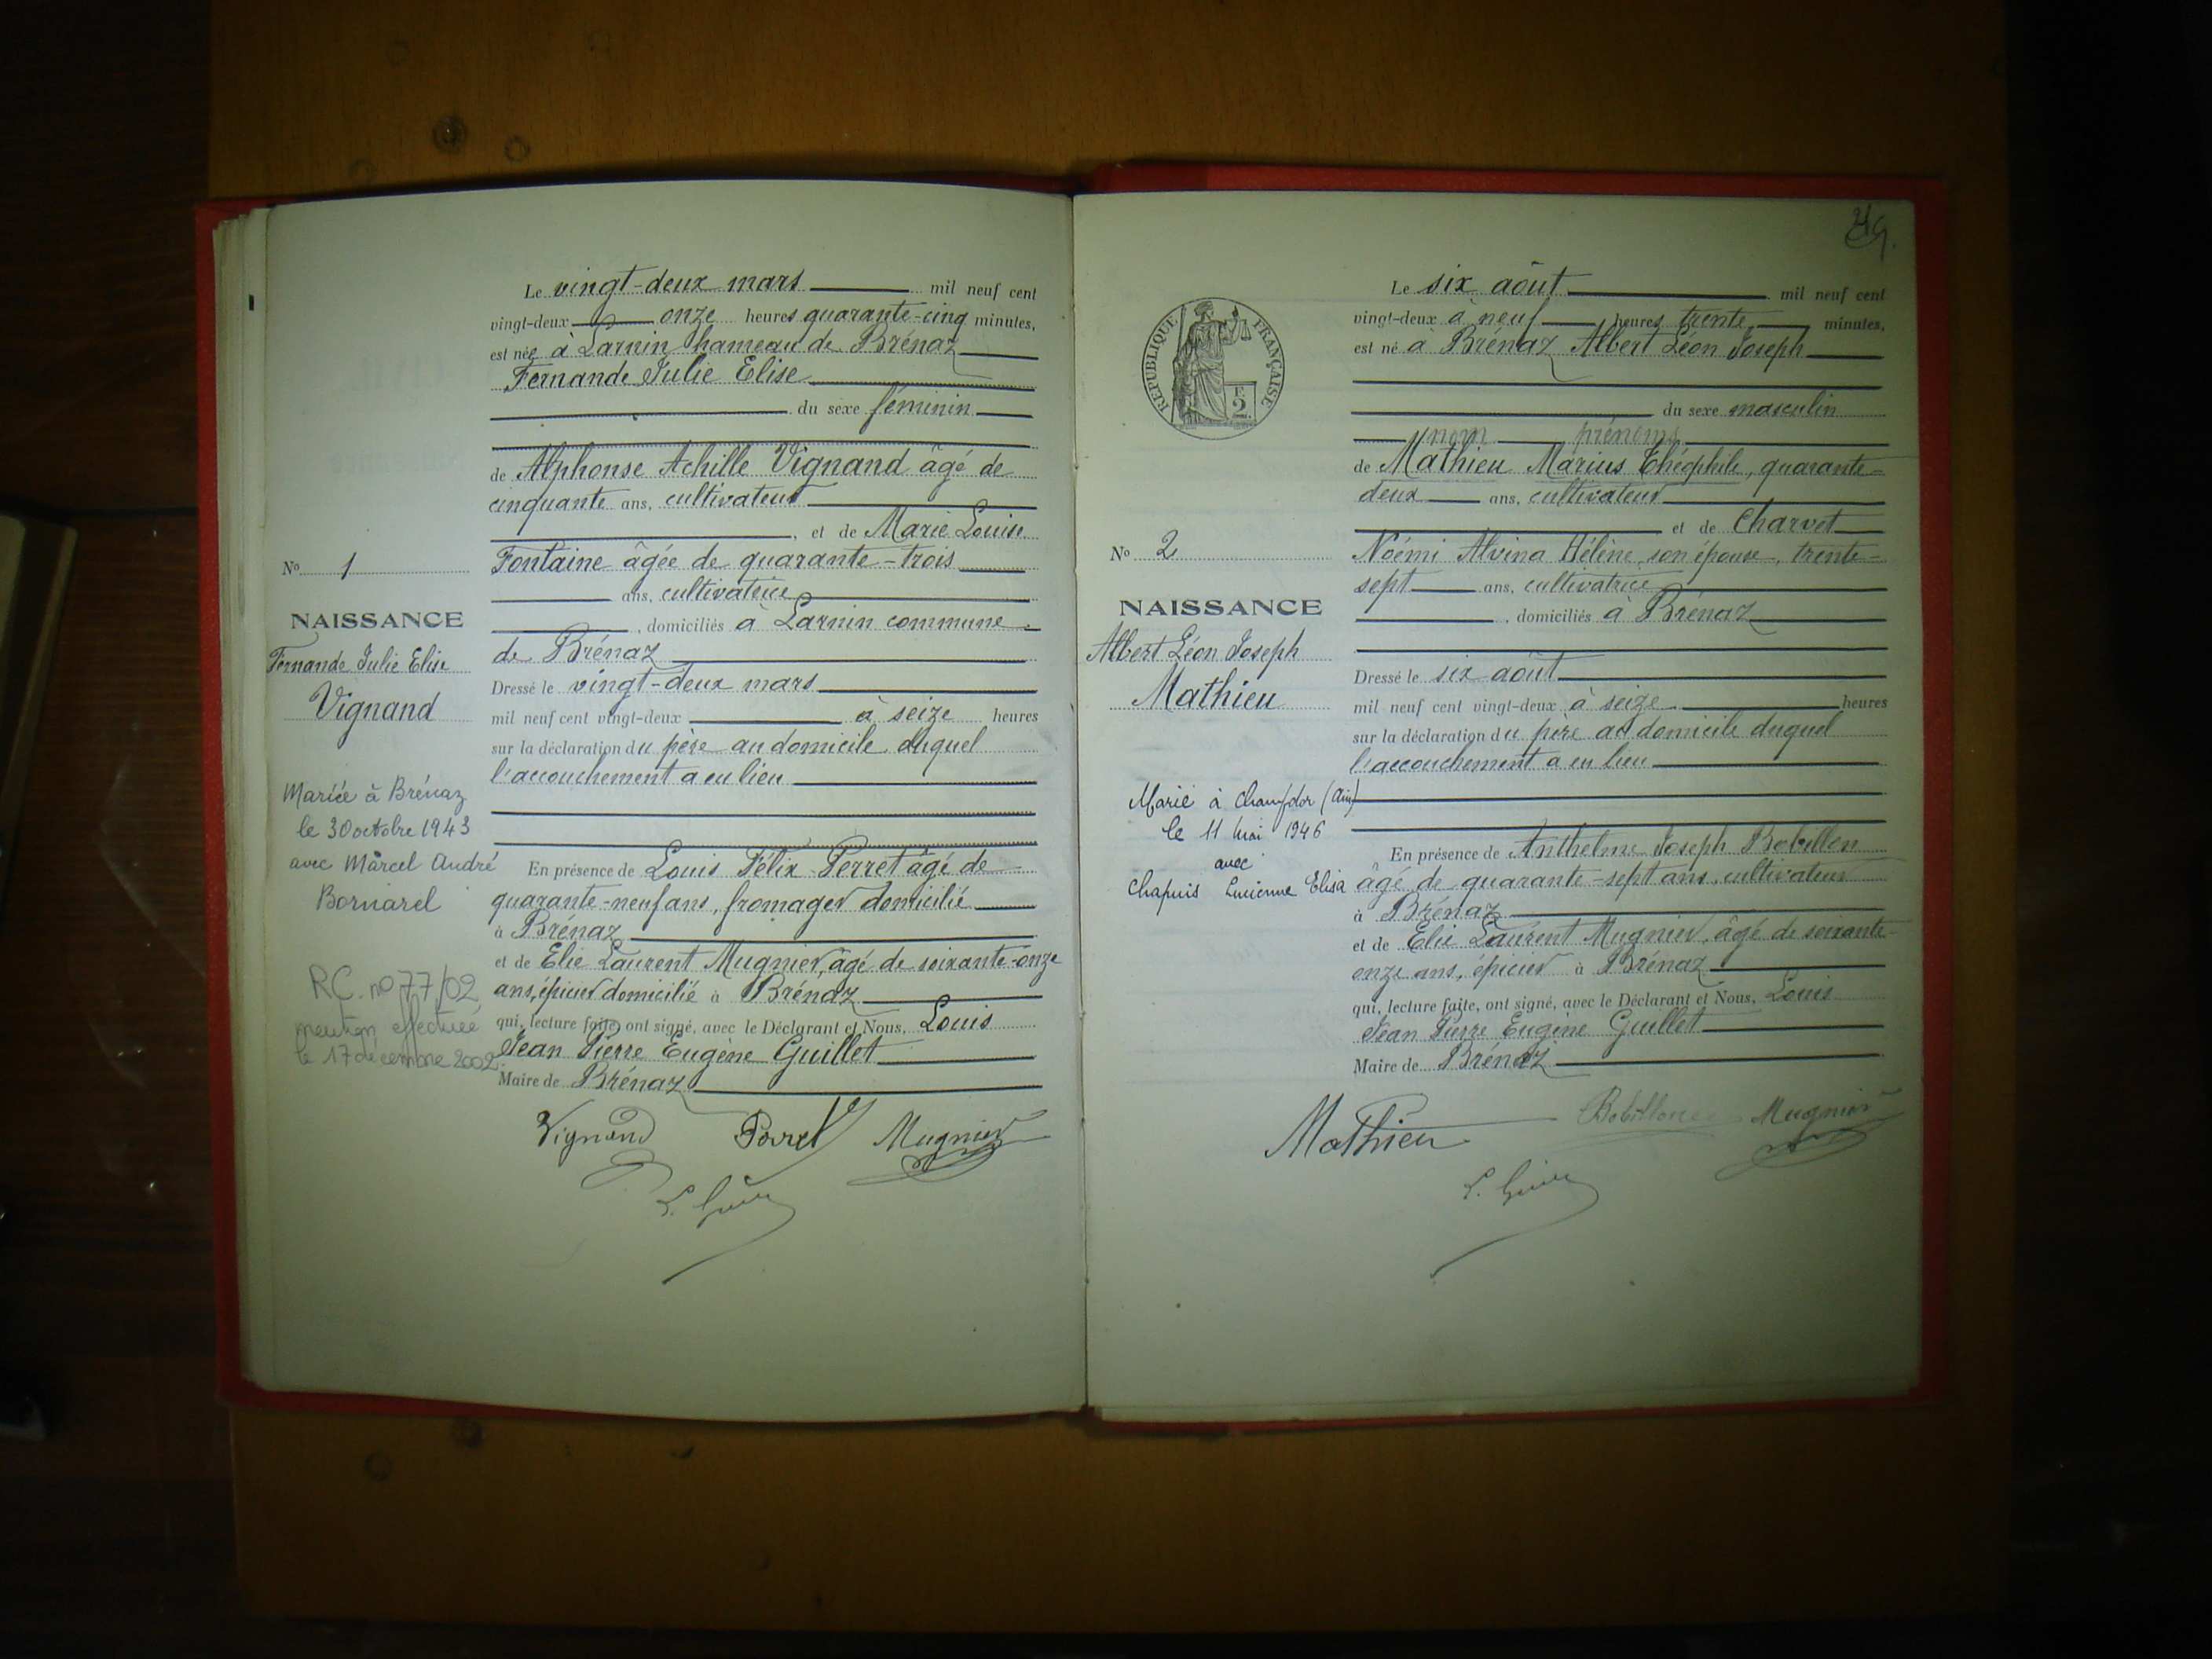 Le vingt-deux mars mil neuf cent
vingt-deux onze heures quarante-cinq minutes,
est née à Larnin hameau de Brénaz
Fernande Julie Elise
du sexe féminin
de Alphonse Achille Vignand âgé de
cinquante ans, cultivateur
, et de Marie Louise
Fontaine âgée de quarante-trois
ans, cultivatrice
, domiciliés à Larnin commune
de Brénaz
Dressé le vingt-deux mars
mil neuf cent vingt-deux à seize heures
sur la déclaration du père au domicile duquel
l'accouchement a eu lieu
En présence de Louis Félix Perret âgé de
quarante-neuf ans, fromager domicilié
à Brénaz
et de Elie Laurent Mugnier, âgé de soixante-onze
ans, épicier domicilié à Brénaz
qui, lecture faite, ont signé, avec le Déclarant et Nous, Louis
Jean Pierre Eugène Guillet
Maire de Brénaz
Vignand Perret Mugnier
No 1
NAISSANCE
Fernande Julie Elise
Vignand
Mariée à Brénaz
le 30 octobre 1943
avec Marcel André
Bornarel
RC. no 77/02
mention effectuée
le 17 décembre 2002
Le six août mil neuf cent
vingt-deux à neuf heures trente minutes,
est né à Brénaz Albert Léon Joseph
du sexe masculin
nom prénoms
de Mathieu Marius Théophile, quarante-
deux ans, cultivateur
et de Charvet
Noémi Alvina Hélène, son épouse, trente-
sept ans, cultivatrice
, domiciliés à Brénaz
Dressé le six août
mil neuf cent vingt-deux à seize heures
sur la déclaration du père au domicile duquel
l'accouchement a eu lieu
En présence de Anthelme Joseph Bobillon
âgé de quarante-sept ans, cultivateur
à Brénaz
et de Elie Laurent Mugnier, âgé de soixante-
onze ans, épicier à Brénaz
qui, lecture faite, ont signé, avec le Déclarant et Nous, Louis
Jean Pierre Eugène Guillet
Maire de Brénaz
Mathieu Bobillon Mugnier
RÉPUBLIQUE FRANÇAISE
2
No 2
NAISSANCE
Albert Léon Joseph
Mathieu
Marié à Champdor (Ain)
le 11 Mai 1946
avec
Chapuis Lucienne Elisa